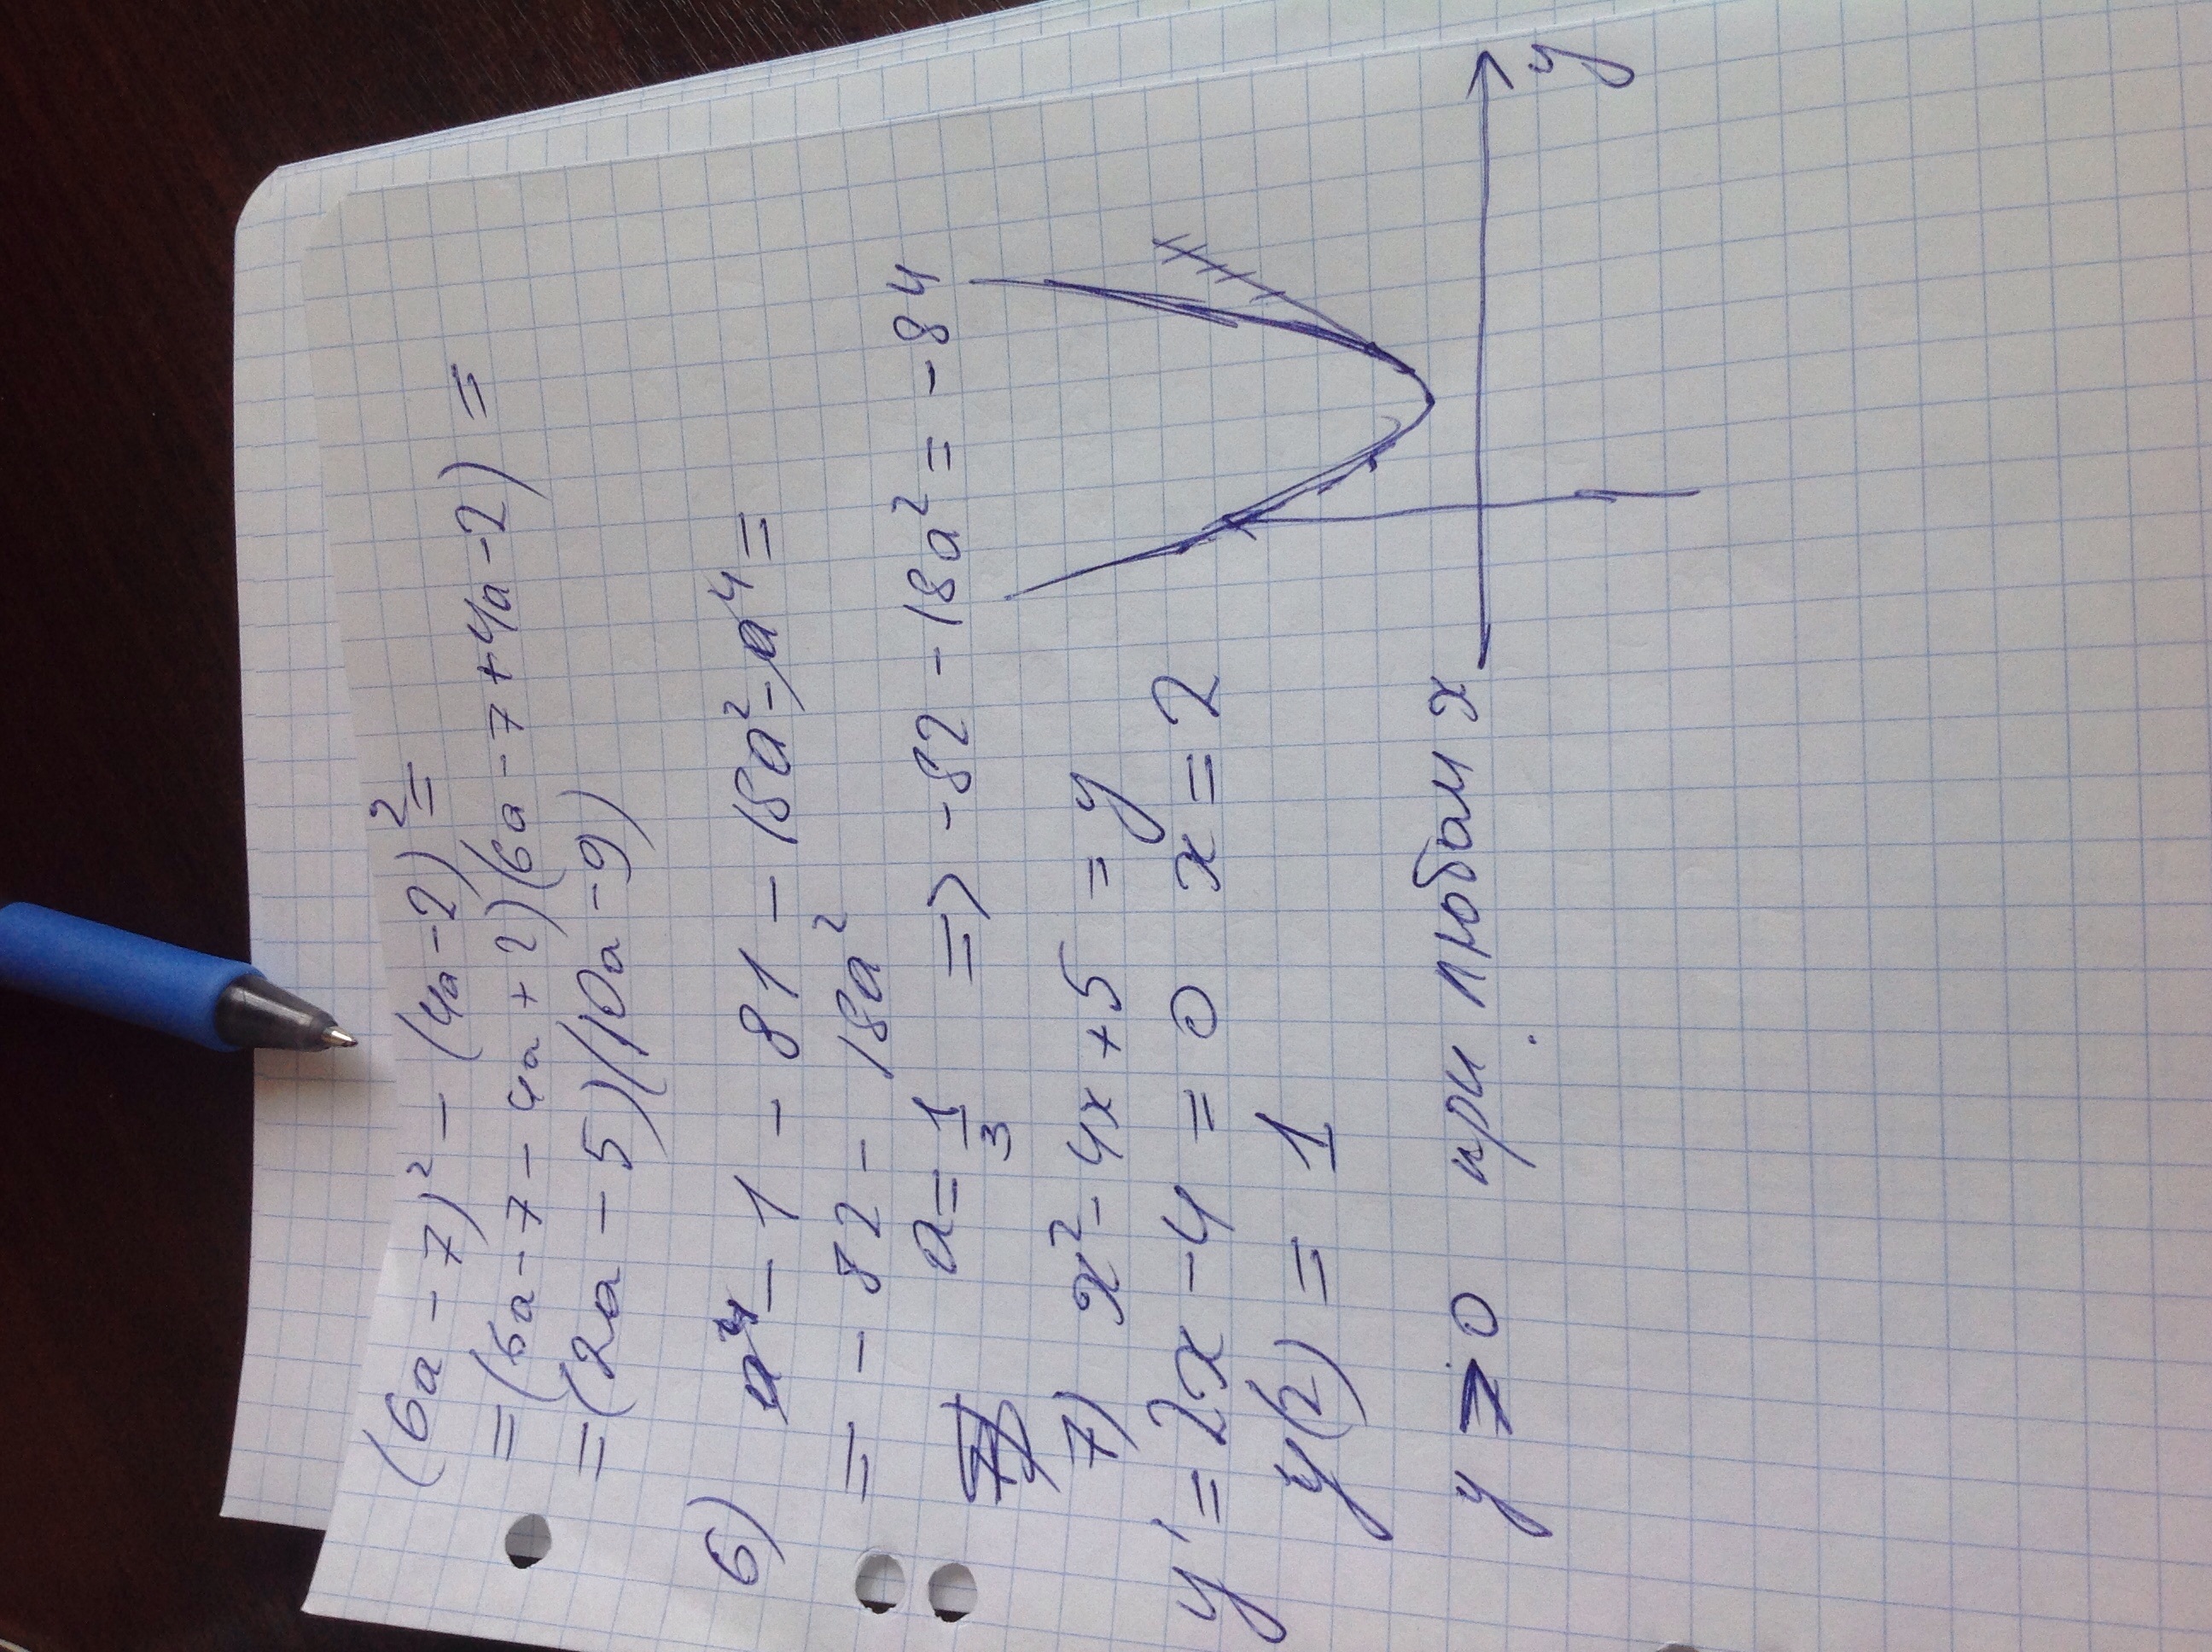 (6a - 7)² - (4a - 2)² =
= (6a - 7 - 4a + 2)(6a - 7 + 4a - 2) =
= (2a - 5)(10a - 9)
6) a⁴ - 1 - 81 - 18a² - a⁴ =
= - 82 - 18a²
a = 1/3 => -82 - 18a² = -84
7) x² - 4x + 5 = y
y' = 2x - 4 = 0 x = 2
y(2) = 1
y > 0 при любом x
y